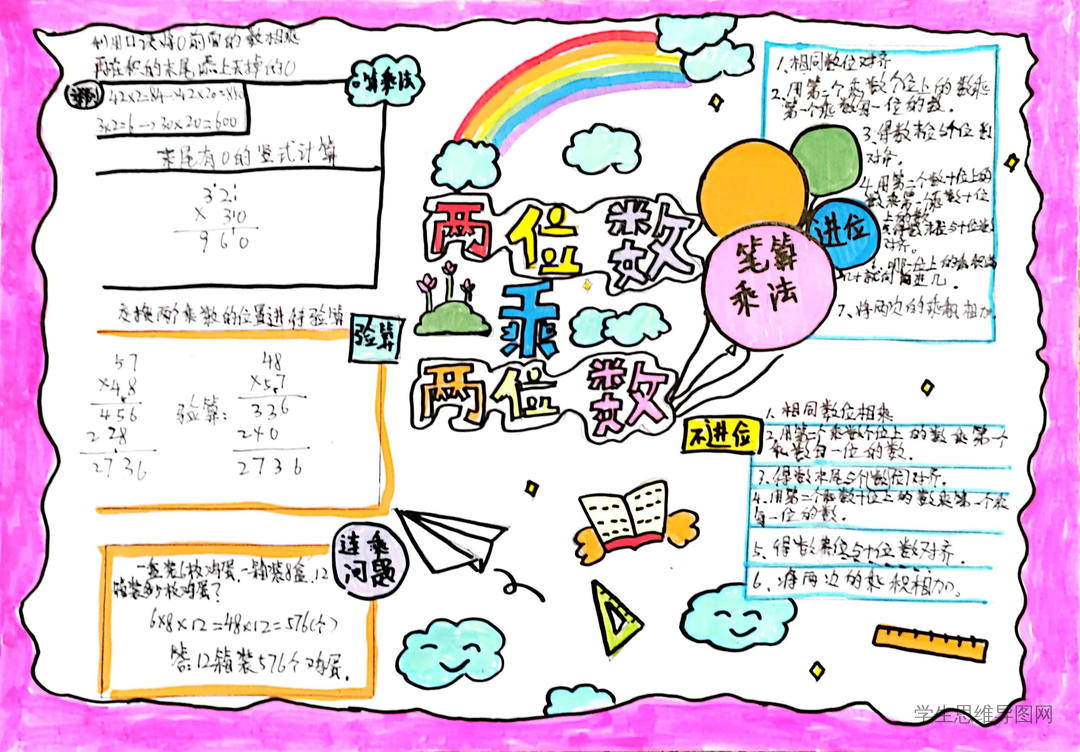 利用口诀将0前面的数相乘
再在积的末尾添上去掉的0
口算乘法
举例
42×2=84→42×20=840
3×2=6→30×20=600
末尾有0的竖式计算
321
× 30
960
交换两个乘数的位置进行验算
验算
57
×4.8
456
228
2736
验算:
48
×5.7
336
240
2736
连乘
问题
一盒装6枚鸡蛋,一箱装8盒,12
箱装多少枚鸡蛋?
6×8×12=48×12=576(个)
答:12箱装576个鸡蛋.
两位数
乘
两位数
笔算
乘法
进位
1、相同数位对齐
2、用第二个乘数个位上的数乘
第一个乘数每一位的数.
3、得数末位与个位数
对齐.
4、用第二个数十位上的
对齐.
7、将两边的乘积相加.
不进位
1、相同数位相乘
2、用第二个乘数个位上的数乘第一个
乘数每一位的数.
3、得数末尾与个(数位)对齐.
4、用第二个乘数十位上的数乘第一个乘
每一位的数.
5、得数末位与十位数对齐.
6、将两边的乘积相加。
学生思维导图网